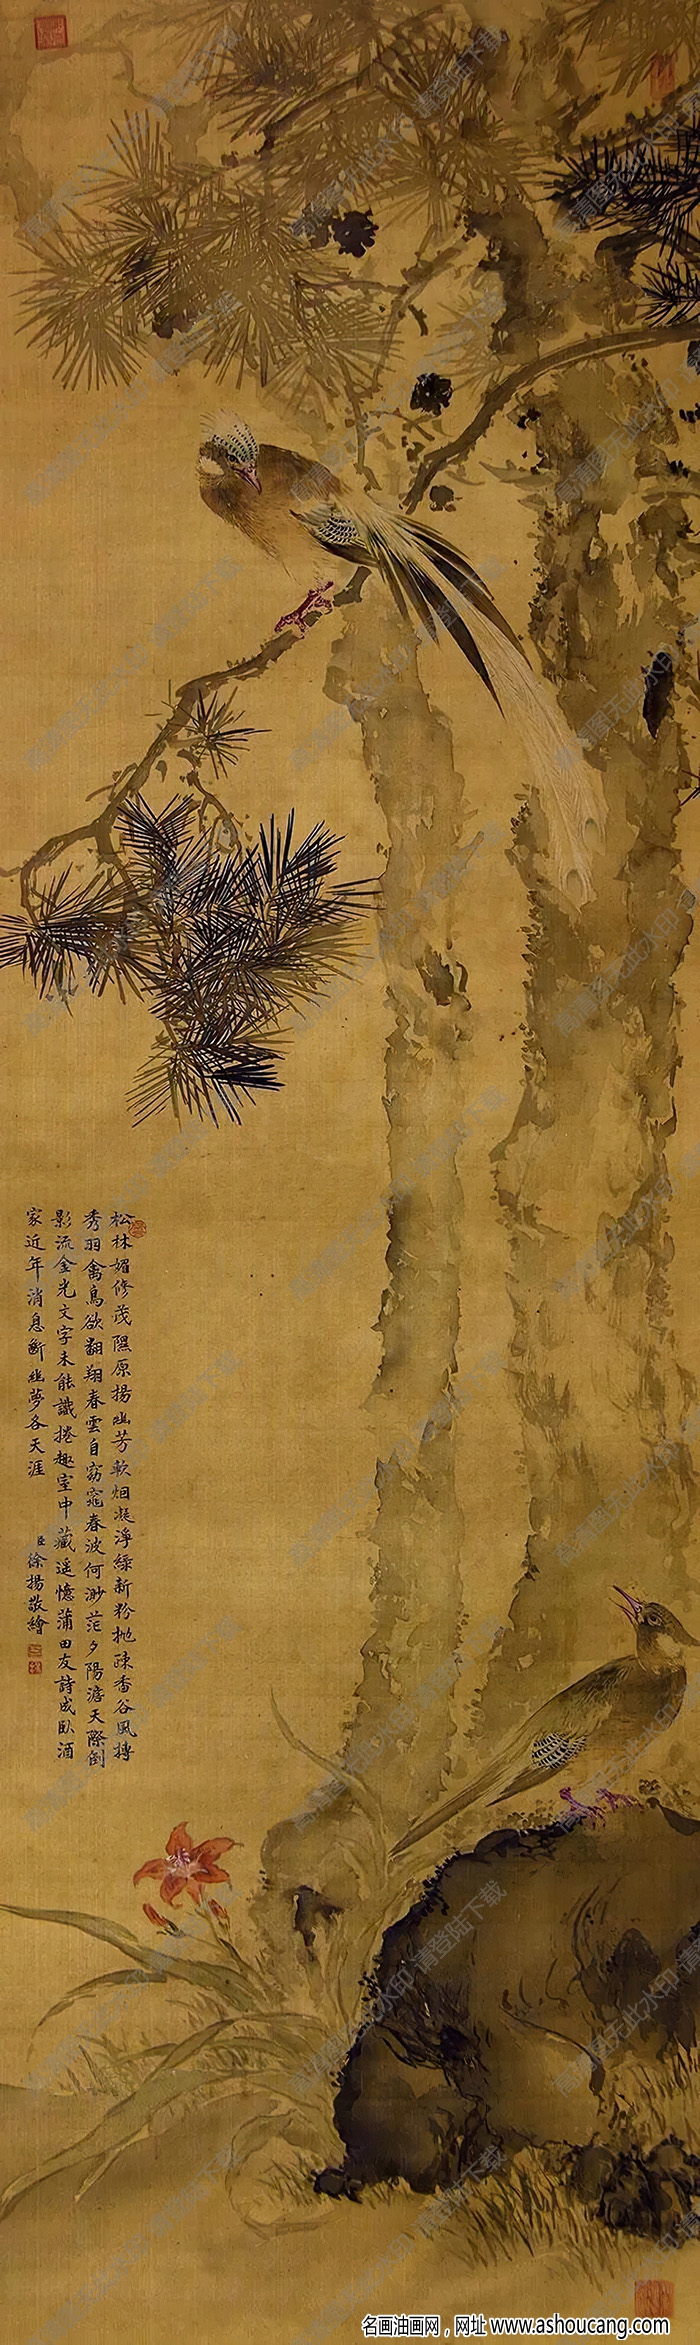 松林媚修茂隰原揚幽芳軟烟凝淨綠新粉拋疎香谷風摶
秀羽禽鳥欲翻翔春雲自窈窕春波何渺茫夕陽澹天際倒
影流金光文字未能識捲趣室中藏遥憶蒲田友詩成臥酒
家近年消息斷幽夢各天涯
臣徐揚敬繪
高清图无此水印·请登陆下载
名画油画网，网址 www.ashoucang.com